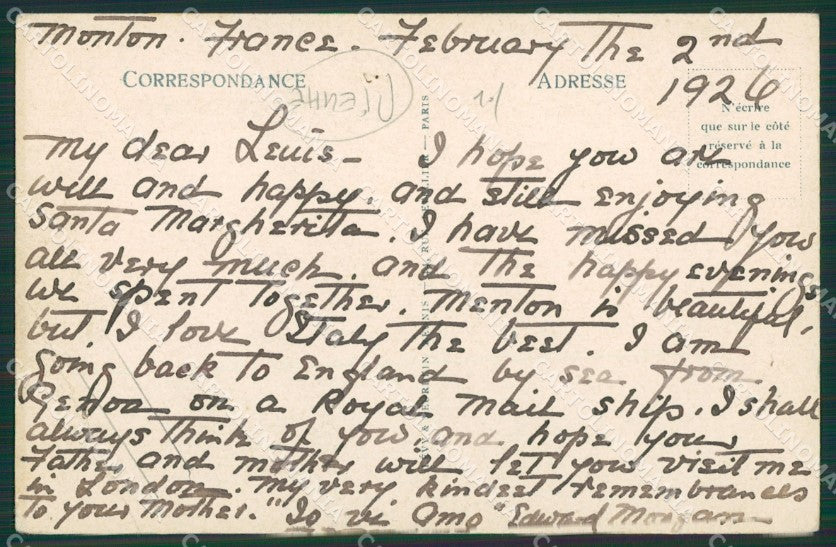 Monton. France. February the 2nd
1926
CORRESPONDANCE
ADRESSE
N'écrire
que sur le côté
réservé à la
correspondance
My dear Leuis - I hope you are
will and happy. and still enjoying
Santa Margherita. I have missed you
all very much. and the happy evenings
we spent together. Menton is beautiful,
but I love Italy the best. I am
going back to England by sea from
Genoa on a Royal Mail ship. I shall
always think of you. and hope your
Father and mother will let you visit me
in London. My very kindest remembrances
to your Mother. "Io vi amo" Edward Morgan
PARIS
CARTOLINOMANIA